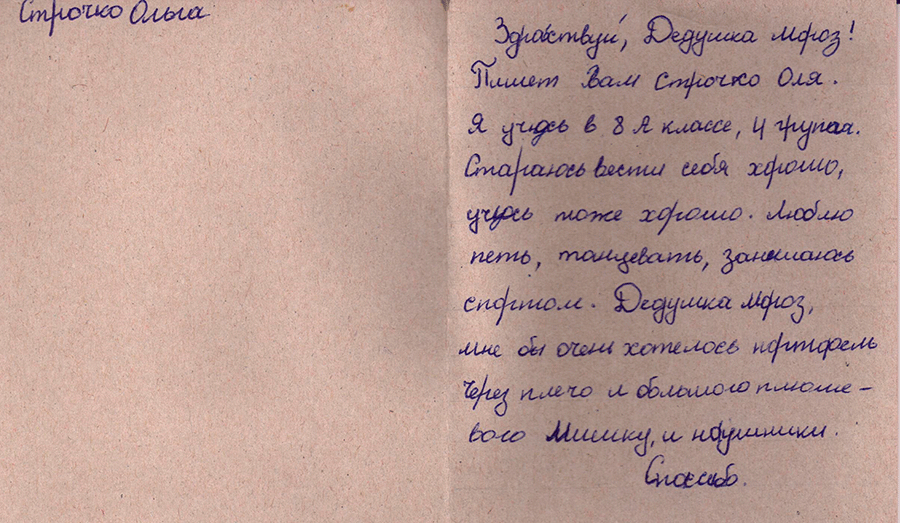 Строчко Ольга
Здравствуй, Дедушка Мороз!
Пишет Вам Строчко Оля.
Я учусь в 8 А классе, 4 группа.
Стараюсь вести себя хорошо,
учусь тоже хорошо. Люблю
петь, танцевать, занимаюсь
спортом. Дедушка Мороз,
мне бы очень хотелось портфель
через плечо и большого плюше-
вого Мишку, и наушники.
Спасибо.